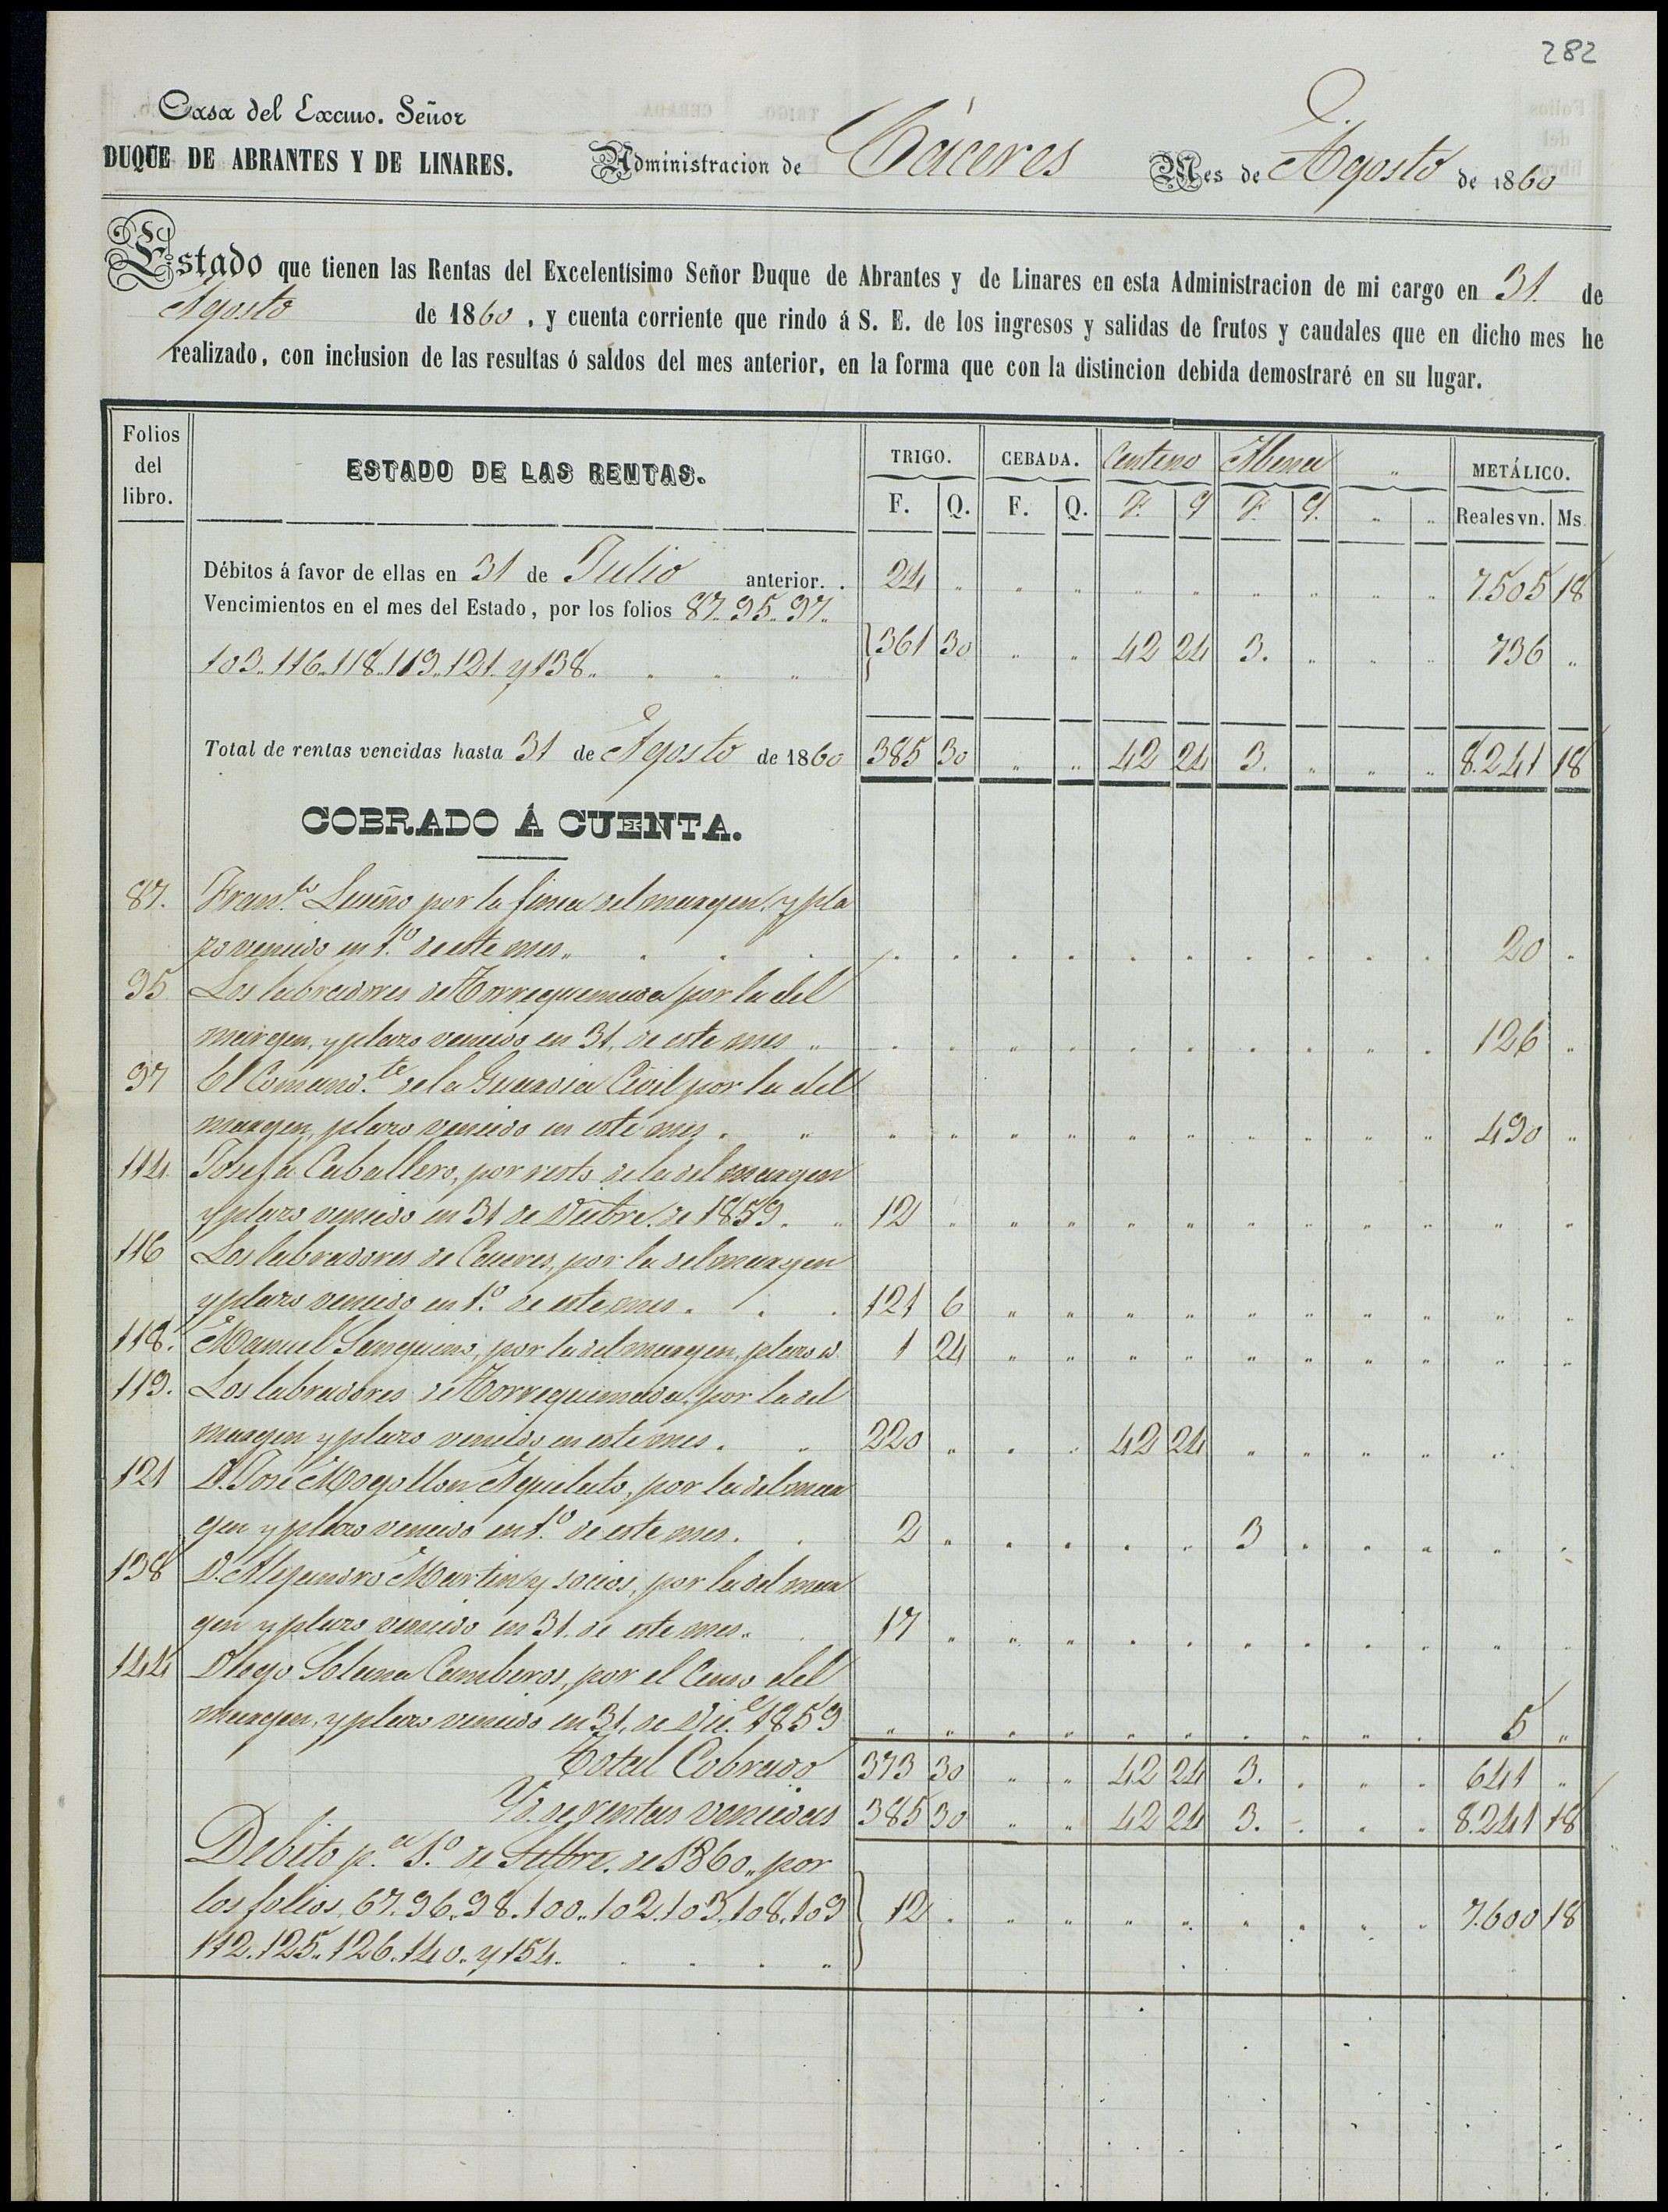 282
Casa del Excmo. Señor
DUQUE DE ABRANTES Y DE LINARES. Administracion de Cáceres Mes de Agosto de 1860
Estado que tienen las Rentas del Excelentísimo Señor Duque de Abrantes y de Linares en esta Administracion de mi cargo en 31. de
Agosto de 1860, y cuenta corriente que rindo á S. E. de los ingresos y salidas de frutos y caudales que en dicho mes he
realizado, con inclusion de las resultas ó saldos del mes anterior, en la forma que con la distincion debida demostraré en su lugar.
Folios del libro. ESTADO DE LAS RENTAS. TRIGO. CEBADA. Centeno Abena " METÁLICO.
F. Q. F. Q. F. Q F. Q. " " Reales vn. Ms.
Débitos á favor de ellas en 31 de Julio anterior. . 24 " " " " " " " " " 7.505 18
Vencimientos en el mes del Estado, por los folios 87.. 95.. 97..
103.. 116.. 118.. 119.. 121. y 138.. " " " 361 30 " " 42 24 3. " " " 736 "
Total de rentas vencidas hasta 31 de Agosto de 1860 385 30 " " 42 24 3. " " " 8.241 18
COBRADO Á CUENTA.
87. Fran.co por la finca del margen, y pla
zo vencido en 1.º de este mes.. . . . . . . . . . . . . . . 20 .
95 Los labradores de Torrequemada por la del
margen, y plazo vencido en 31. de este mes " . . " . . . . . " . 126 "
97 El Comand.te de la Guardia Civil por la del
margen, plazo vencido en este mes . " " " " " " " " " " " 490 "
114. Josefa Caballero, por resto de la del margen
y plazo vencido en 31 de Dicbre. de 1859. " 12 " " " " " " " " " " "
116 Los labradores de Caceres, por la del margen
y plazo vencido en 1.º de este mes . . . 121 6 " " " " " " " " " "
118. Manuel Senguino, por la del margen, plazo id. 1 24 " " " " " " " " " "
119. Los labradores de Torrequemada, por la del
margen y plazo vencido en este mes . " 220 " " " 42 24 " " " " "
121 D. José Mogollon Aguilato, por la del mar
gen y plazo vencido en 1.º de este mes. . 2 " . . . . 3 . . " " .
138 D. Alejandro Martin y socios, por la del mar
gen y plazo vencido en 31. de este mes.. . 17 " " " . . " . . . " .
144 Diego Solana Camberos, por el Censo del
margen, y plazo vencido en 31. de Dic.e 1859 " " " " " " " " " . 5 "
Total Cobrado 373 30 " " 42 24 3. . " . 641 "
Yd. de rentas vencidas 385 30 " " 42 24 3. . . . 8.241 18
Debito p.a 1.º de Setbre. de 1860.. por
los folios, 67. 96. 98. 100.. 102. 103. 108. 109 12 . " " " " " . " . 7.600 18
112. 125.. 126. 140.. y 154. . . . "